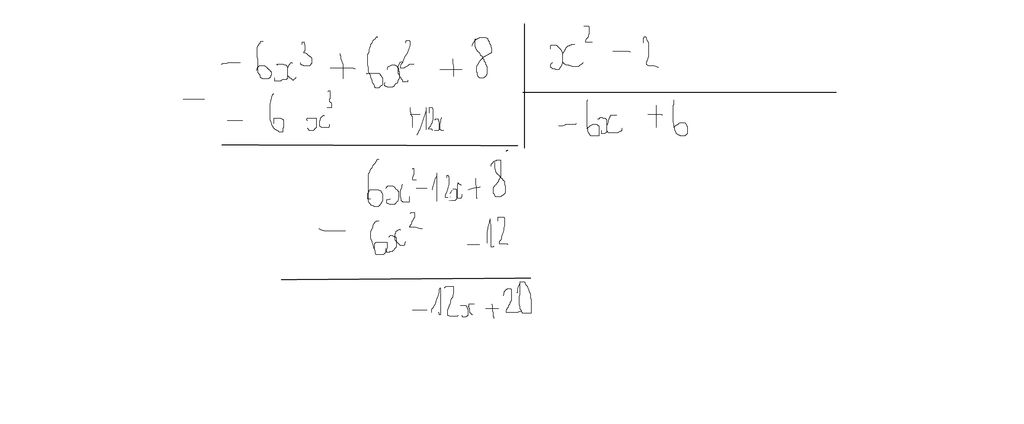 -6x³ + 6x² + 8 | x² - 2
- -6x³ +12x | -6x + 6
6x² - 12x + 8
- 6x² - 12
-12x + 20